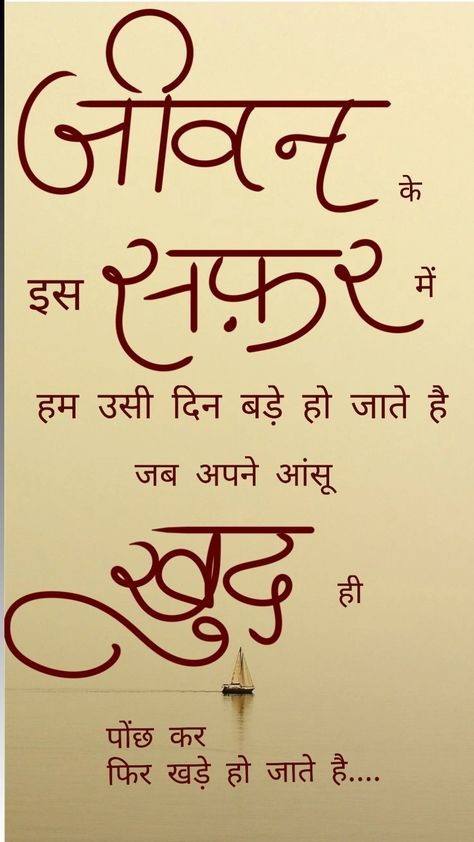 जीवन के
इस सफ़र में
हम उसी दिन बड़े हो जाते है
जब अपने आंसू
खुद ही
पोंछ कर
फिर खड़े हो जाते है....